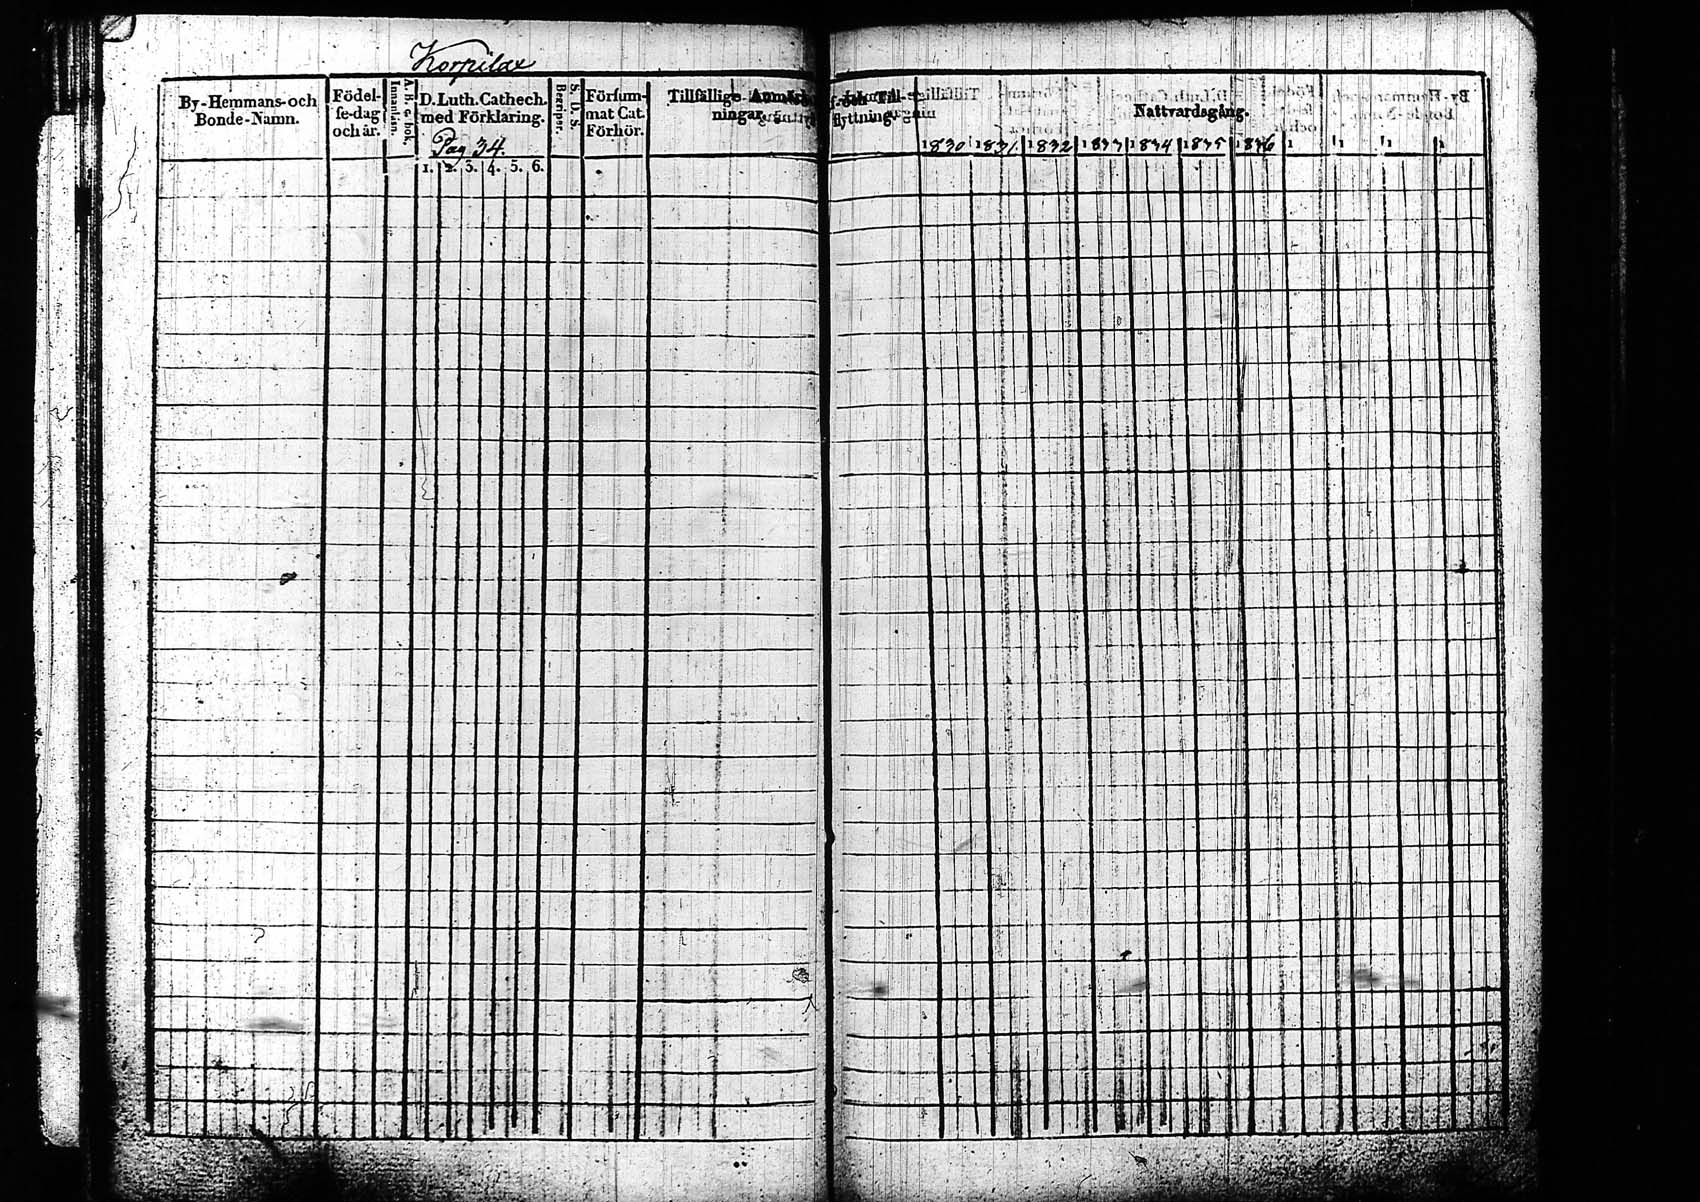 Korpilax
By-Hemmans-och
Bonde-Namn.
Födel-
se-dag
och år.
A. B. C. bok.
Innanläsn.
D. Luth. Cathech.
med Förklaring.
Pag 34
1. 2. 3. 4. 5. 6.
S. D. S.
Begriper.
Försum-
mat Cat.
Förhör.
Tillfällige Anmärk
ningar.
flyttning.
Nattvardsgång.
1830 1831 1832 1833 1834 1835 1836 1 1 1 1